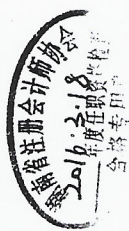 南省注册会计师协会
2016.3.18
年度任职资格检
合格专用